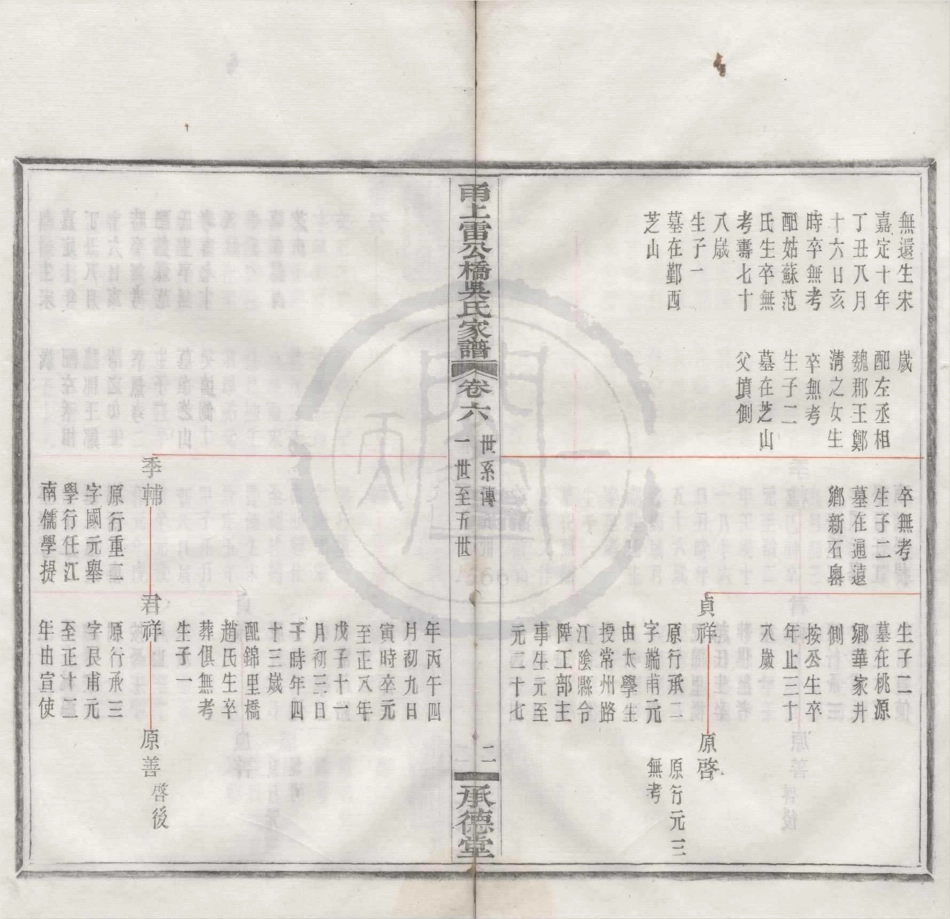 無還生宋
嘉定十年
丁丑八月
十六日亥
時卒無考
配姑蘇范
氏生卒無
考壽七十
八歲
生子一
墓在鄞西
芝山
歲
配左丞相
魏郡王鄭
清之女生
卒無考
生子二
墓在芝山
父墳側
卒無考
生子二
墓在通遠
鄉新石嶴
生子二
墓在桃源
鄉華家井
側
按公生卒
年止三十
八歲
貞祥
原行承二
字端甫元
由太學生
授常州路
江陰縣令
陞工部主
事生元至
元二十七
原啓
原行元三
無考
甬上雷公橋吳氏家譜
卷六
世系傳
一世至五世
二
承德堂
年丙午四
月初九日
寅時卒元
至正八年
戊子十一
月初三日
子時年四
十三歲
配錦里橋
趙氏生卒
葬俱無考
生子一
季輔
原行重二
字國元舉
學行任江
南儒學提
君祥
原行承三
字民甫元
至正十二
年由宣使
原善
啓後